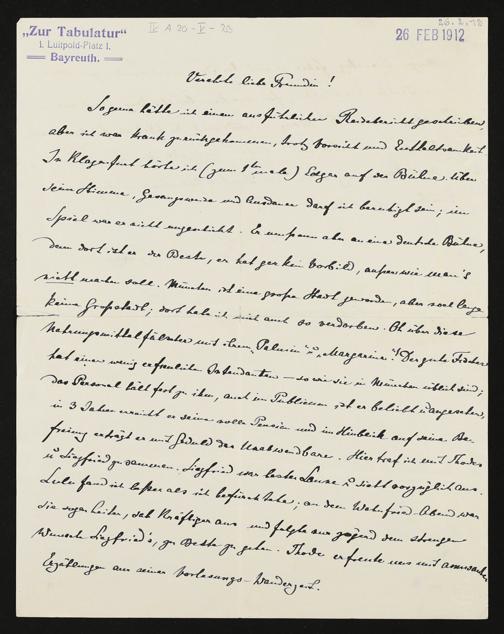 „Zur Tabulatur"
1. Luitpold-Platz 1.
Bayreuth.
26 FEB 1912
Verehrte liebe Freundin!
So gerne hätte ich einen ausführlichen Reisebericht geschrieben,
aber ich war krank zurückgekommen, trotz Vorsicht und Enthaltsamkeit
In Klagenfurt hörte ich (zum 1ten male) auf der Bühne. Über
seine Stimme, Gesangsweise und Ausdauer darf ich beruhigt sein; im
Spiel war er nicht ungeschickt. Er muss aber an eine deutsche Bühne,
denn dort ist er der Beste, er hat gar kein Vorbild, außer wie man's
nicht machen soll. München ist eine große Stadt geworden, aber noch lange
keine Großstadt; dort habe ich mich auch so verdorben. Oh über diese
Nahrungsmittelfälscher mit ihrem „Palmin" u „Margarine"! Der gute Fischer
hat einen wenig erfreulichen Intendanten – so wie sie in München üblich sind;
das Personal hält fest zu ihm, auch im Publicum ist er beliebt u angesehen,
in 3 Jahren erreicht er seine volle Pension und im Hinblick auf seine Be-
freiung erträgt er mit Geduld das Unabwendbare. Hier traf ich mit Thode
u Siegfried zusammen. Siegfried war bester Laune u sieht vorzüglich aus.
fand ich besser als ich befürchtete; an dem Wahnfried-Abend war
sie sogar heiter, sah kräftiger aus und folgte nur zögernd dem strengen
Wunsche Siegfried's, zu Bette zu gehen. Thode erfreute uns mit amüsanten
Erzählungen aus seiner Vorlesungs-Wanderzeit.